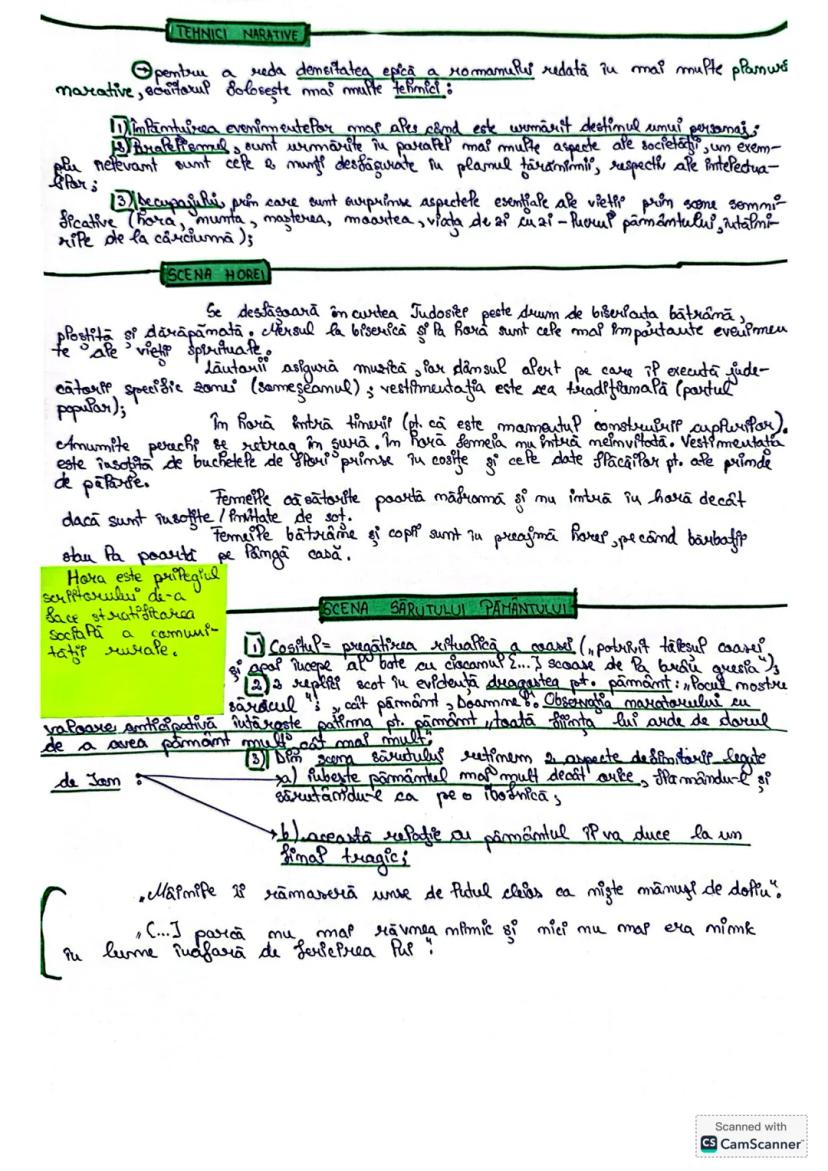 TEHNICI NARATIVE
→ pentru a reda densitatea epică a romanului redată în mai multe planuri
narative, scriitorul folosește mai multe tehnici:
1) Înlănțuirea evenimentelor mai ales când este urmărit destinul unui personaj;
2) Paralelismul, sunt urmărite în paralel mai multe aspecte ale societății, un exem-
plu relevant sunt cele 2 nunți desfășurate în planul țărănimii, respectiv ale intelectua-
lilor;
3) Decupajului, prin care sunt surprinse aspectele esențiale ale vieții prin scene semni-
ficative (hora, nunta, nașterea, moartea, viața de zi cu zi - lucrul pământului, întâlni-
rile de la cârciumă);
SCENA HOREI
Se desfășoară în curtea Todosiei peste drum de bisericuța bătrână,
pleoștită și dărăpănată. Mersul la biserică și la horă sunt cele mai importante evenimen
te ale vieții spirituale.
Lăutarii asigură muzică, iar dansul alert pe care îl execută jude-
cătorii specific zonei (someșeanul); vestimentația este cea tradițională (portul
popular);
În horă intră tinerii (pt. că este momentul construirii cuplurilor).
Anumite perechi se retrag în șură. În horă femeia nu intră neinvitată. Vestimentația
este însoțită de buchetele de flori prinse în cosițe și cele date flăcăilor pt. ale prinde
de pălărie.
Femeile căsătorite poartă năframă și nu intră în horă decât
dacă sunt însoțite/invitate de soț.
Femeile bătrâne și copii sunt în preajmă horei, pe când bărbații
stau la poartă pe lângă casă.
Hora este prilegiul
scriitorului de-a
face stratificarea
socială a comuni-
tății rurale.
SCENA SĂRUTULUI PĂMÂNTULUI
1) Cositul = pregătirea ritualică a coasei („potrivit tăișul coasei
și apoi începe al bate cu ciocanul [...] scoase de la brâu gresia");
2) 2 replici scot în evidență dragostea pt. pământ: „Locul nostru
săracul"; „cât pământ, Doamne". Observația naratorului cu
valoare anticipativă întărește patima pt. pământ „toată ființa lui arde de dorul
de a avea pământ mult, cât mai mult".
3) Din scena sărutului reținem 2 aspecte definitorii legate
de Ion :
a) iubește pământul mai mult decât orice, frământându-l și
sărutându-l ca pe o ibovnică;
b) această relație cu pământul îl va duce la un
final tragic;
„Mâinile îi rămaseră unse de lutul cleios ca niște mănuși de doliu".
„[...] parcă nu mai râvnea nimic și nici nu mai era nimic
în lume înafară de fericirea lui".
Scanned with
CS CamScanner